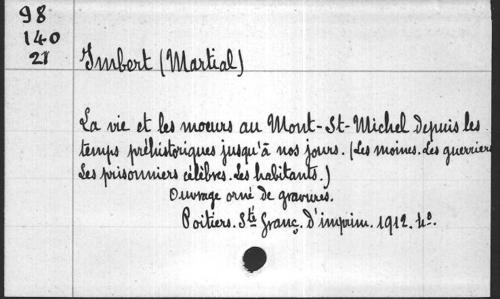 98
140
21
Imbert (Martial)
La vie et les mœurs au Mont-St-Michel depuis les
temps préhistoriques jusqu'à nos jours. (Les moines. Les guerriers
Les prisonniers célèbres. Les habitants.)
Ouvrage orné de gravures.
Poitiers. Sté Franç. d'imprim. 1912. 4º.